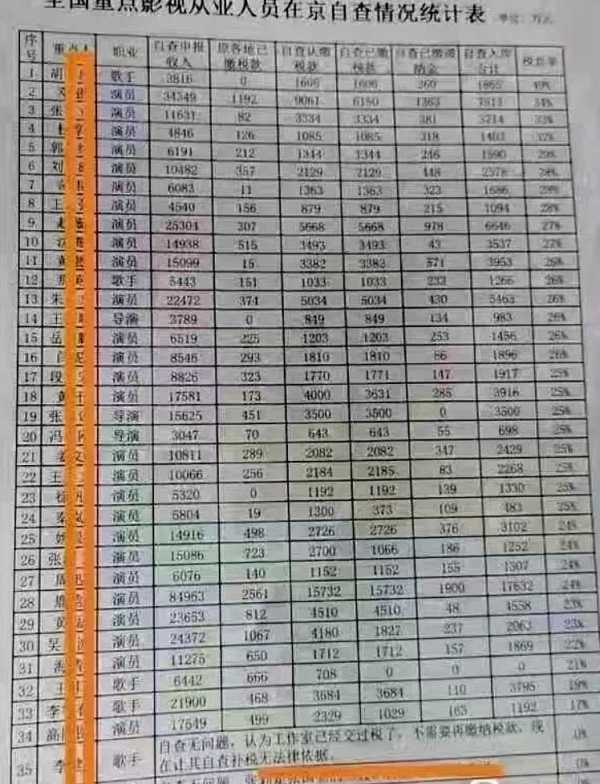 全国重点影视从业人员在京自查情况统计表 单位：万元
序号 重点人 职业 自查申报收入 原各地已缴税款 自查认缴税款 自查已缴税款 自查已缴滞纳金 自查入库合计 税款率
1 胡 歌手 3816 0 1606 1606 260 1865 49%
2 邓 演员 34349 1192 9061 6150 1363 7513 34%
3 张 演员 11631 82 3334 3334 381 3714 33%
4 杜 演员 4846 126 1085 1085 318 1403 32%
5 郭 演员 6191 212 1344 1344 246 1590 29%
6 刘 演员 10482 357 2129 2129 448 2578 28%
7 演员 6083 11 1363 1363 323 1686 28%
8 王 演员 4540 156 879 879 215 1094 28%
9 赵 演员 25304 307 5668 5668 978 6646 27%
10 演员 14938 515 3493 3493 43 3537 27%
11 黄 演员 15099 15 3382 3382 571 3953 26%
12 歌手 5443 151 1033 1033 233 1266 26%
13 朱 演员 22472 374 5034 5034 430 5463 26%
14 王 导演 3789 0 849 849 134 983 26%
15 岳 演员 6519 225 1203 1203 253 1456 26%
16 闫 演员 8546 293 1810 1810 86 1896 26%
17 段 演员 8826 323 1770 1771 147 1917 25%
18 黄 演员 17581 173 4000 3631 285 3916 25%
19 张 导演 15625 451 3500 3500 0 3500 25%
20 冯 导演 3047 70 643 643 55 698 25%
21 姜 演员 10811 289 2082 2082 347 2429 25%
22 王 演员 10066 256 2184 2185 83 2268 25%
23 杨 演员 5320 0 1192 1192 139 1330 25%
24 秦 演员 5804 19 1300 373 109 483 25%
25 姚 演员 14916 498 2726 2726 376 3102 24%
26 张 演员 15086 723 2700 1066 186 1252 24%
27 周 演员 6076 140 1152 1152 155 1307 24%
28 演员 84963 2561 15732 15732 1900 17632 24%
29 黄 演员 23653 812 4510 4510 48 4558 23%
30 吴 演员 24372 1067 4180 1827 237 2063 23%
31 演员 11275 650 1712 1712 157 1869 22%
32 王 歌手 6442 666 708 0 0 0 21%
33 李 歌手 21900 468 3684 3684 110 3795 19%
34 高 演员 17549 499 2329 1029 163 1192 17%
35 李 歌手 自查无问题，认为工作室已经交过税了，不需要再缴纳税款，现在计其自查补税无法律依据。